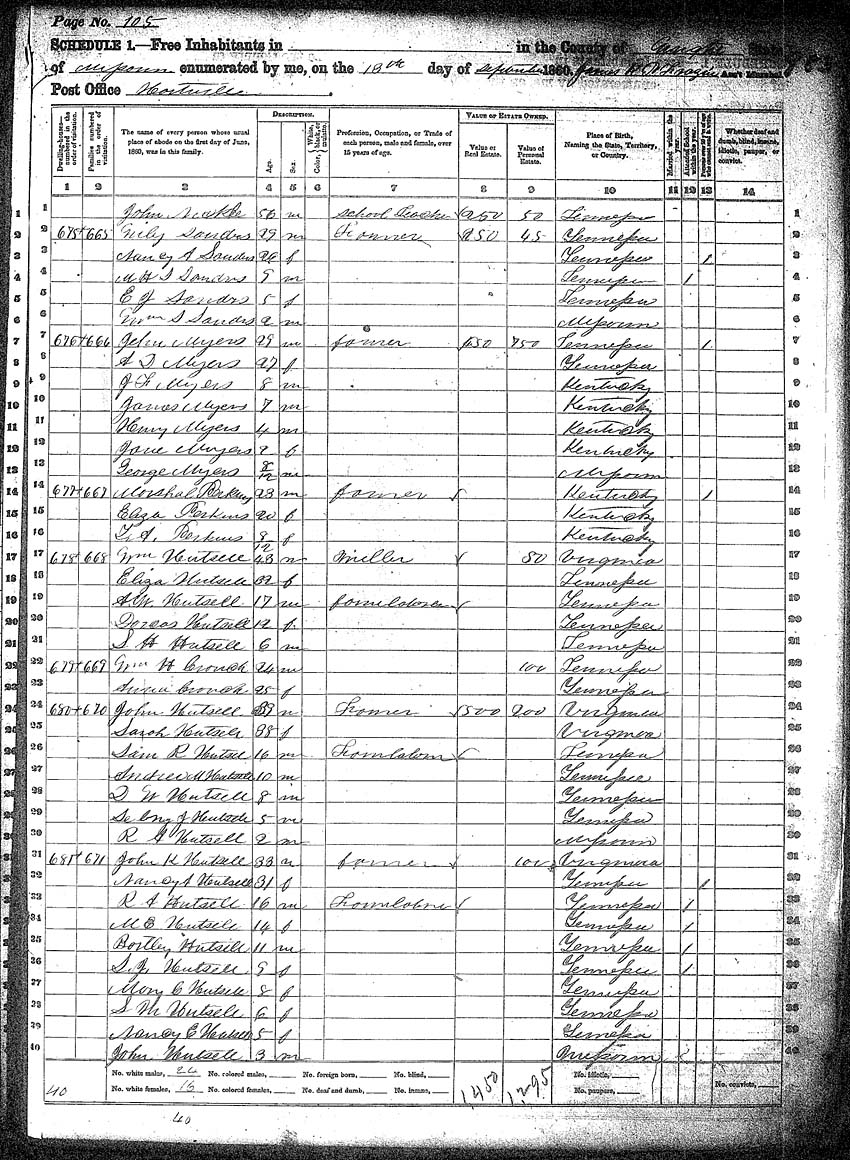 Page No. 105
SCHEDULE 1.—Free Inhabitants in in the County of State
of Missouri enumerated by me, on the 18th day of September 1860. Ass't Marshal
Post Office Hartville
Dwelling-houses—numbered in the order of visitation.
Families numbered in the order of visitation.
The name of every person whose usual place of abode on the first day of June, 1860, was in this family.
DESCRIPTION.
Age.
Sex.
Color, White, black, or mulatto.
Profession, Occupation, or Trade of each person, male and female, over 15 years of age.
VALUE OF ESTATE OWNED.
Value of Real Estate.
Value of Personal Estate.
Place of Birth, Naming the State, Territory, or Country.
Married within the year.
Attended School within the year.
Whether deaf and dumb, blind, insane, idiotic, pauper, or convict.
1 2 3 4 5 6 7 8 9 10 11 12 13 14
1 John 50 m School Teacher 250 50 Tennessee 1
2 675 665 Sanders 29 m Farmer 250 45 Tennessee 2
3 Nancy A Sanders 26 f Tennessee 1 3
4 Sanders 9 m Tennessee 1 4
5 E J Sanders 5 f Tennessee 5
6 Wm S Sanders 2 m Missouri 6
7 676 666 John Myers 29 m farmer 450 750 Tennessee 1 7
8 A D Myers 27 f Tennessee 8
9 Myers 8 m Kentucky 9
10 James Myers 7 m Kentucky 10
11 Henry Myers 4 m Kentucky 11
12 Jane Myers 2 f Kentucky 12
13 George Myers 8/12 m Missouri 13
14 677 667 Marshal Perkins 23 m farmer Kentucky 1 14
15 Eliza Perkins 20 f Kentucky 15
16 Perkins 8/12 f Kentucky 16
17 678 668 Wm Hutsell 43 m Miller 80 Virginia 17
18 Eliza Hutsell 32 f Tennessee 18
19 A W Hutsell 17 m farm laborer Tennessee 19
20 Dorcas Hutsell 12 f Tennessee 20
21 S H Hutsell 6 m Tennessee 21
22 679 669 Wm H Crouch 24 m 100 Tennessee 22
23 Crouch 25 f Tennessee 23
24 680 670 John Hutsell 39 m Farmer 500 200 Virginia 24
25 Sarah Hutsell 38 f Virginia 25
26 Sam R Hutsell 16 m Farm laborer Tennessee 26
27 Andrew M Hutsell 10 m Tennessee 27
28 D W Hutsell 8 m Tennessee 28
29 J Hutsell 5 m Tennessee 29
30 R A Hutsell 2 m Missouri 30
31 681 671 John K Hutsell 33 m farmer 100 Virginia 31
32 Nancy A Hutsell 31 f Tennessee 1 32
33 R A Hutsell 16 m Farm laborer Tennessee 1 33
34 M E Hutsell 14 f Tennessee 1 34
35 Bartley Hutsell 11 m Tennessee 1 35
36 S J Hutsell 9 f Tennessee 1 36
37 Mary C Hutsell 8 f Tennessee 37
38 S M Hutsell 6 f Tennessee 38
39 Nancy E Hutsell 5 f Tennessee 39
40 John Hutsell 3 m Missouri 40
No. white males, 24 No. colored males, No. foreign born, No. blind, No. idiotic, No. convicts,
40 No. white females, 16 No. colored females, No. deaf and dumb, No. insane, 1,450 1,295 No. paupers,
40